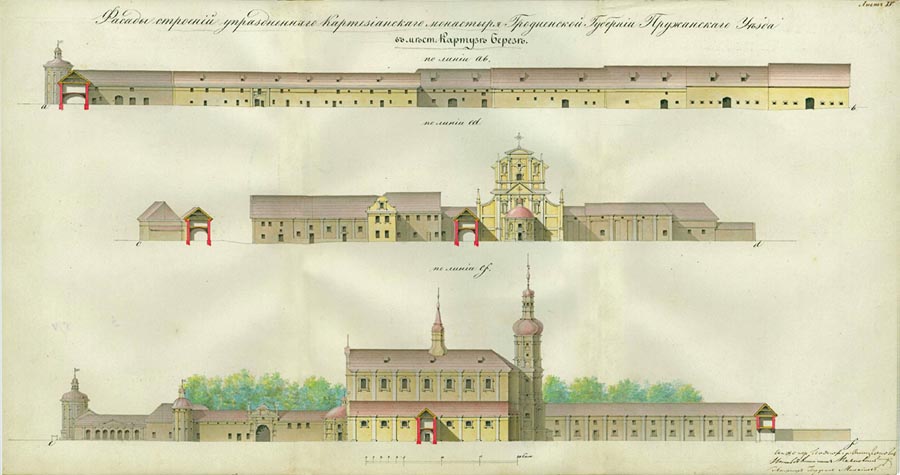 Листъ IV
Фасады строеній упраздненнаго Картезіанскаго монастыря Гродненской Губерніи Пружанскаго Уѣзда
въ мѣст. Картузъ Березѣ.
по линіи ab.
a b
по линіи cd
c d
по линіи ef.
e f